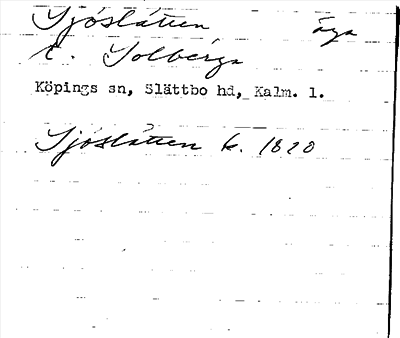 Sjöslätten äga
t. Solberga
Köpings sn, Slättbo hd, Kalm. l.
Sjöslätten k. 1820